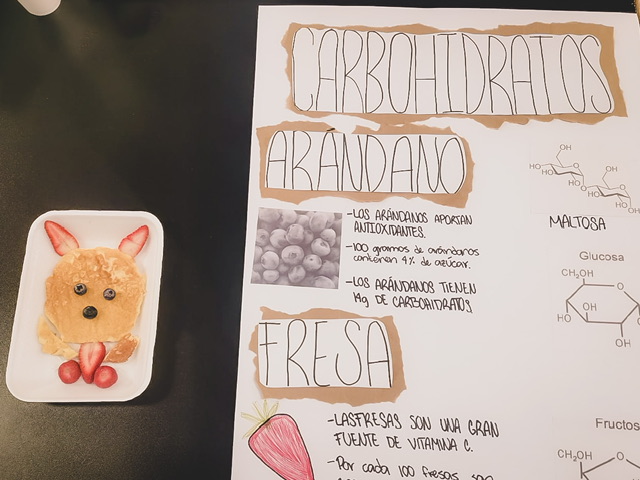 CARBOHIDRATOS
ARANDANO
-LOS ARÁNDANOS APORTAN
ANTIOXIDANTES.
-100 gramos de arándanos
contienen 4% de azúcar.
-LOS ARÁNDANOS TIENEN
14g DE CARBOHIDRATOS
OH
HO
OH
OH
MALTOSA
Glucosa
CH₂OH
OH
HO
OH
FRESA
-LASFRESAS SON UNA GRAN
FUENTE DE VITAMINA C.
-Por cada 100 fresas son
Fructos
CH₂OH